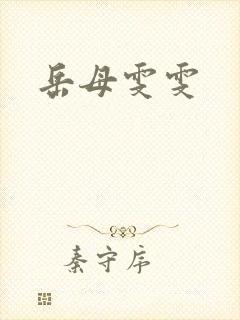 岳母雯雯
秦守序